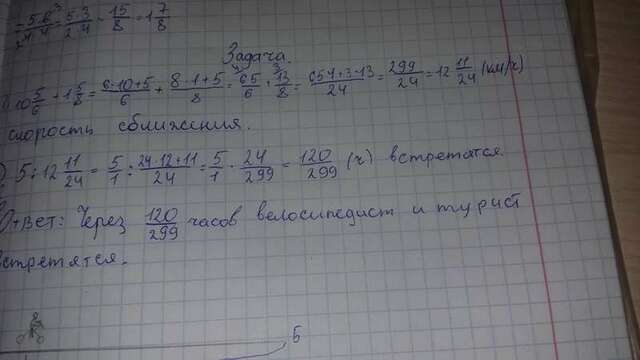 5·6³/2⁴·4 = 5·3/2·4 = 15/8 = 1 7/8
Задача.
10 5/6 + 1 5/8 = 6·10+5/6 + 8·1+5/8 = 65/6 + 13/8 = 65·4+3·13/24 = 299/24 = 12 11/24 (км/ч)
скорость сближения.
) 5 : 12 11/24 = 5/1 : 24·12+11/24 = 5/1 · 24/299 = 120/299 (ч) встретятся.
Ответ: Через 120/299 часов велосипедист и турист
встретятся.
5